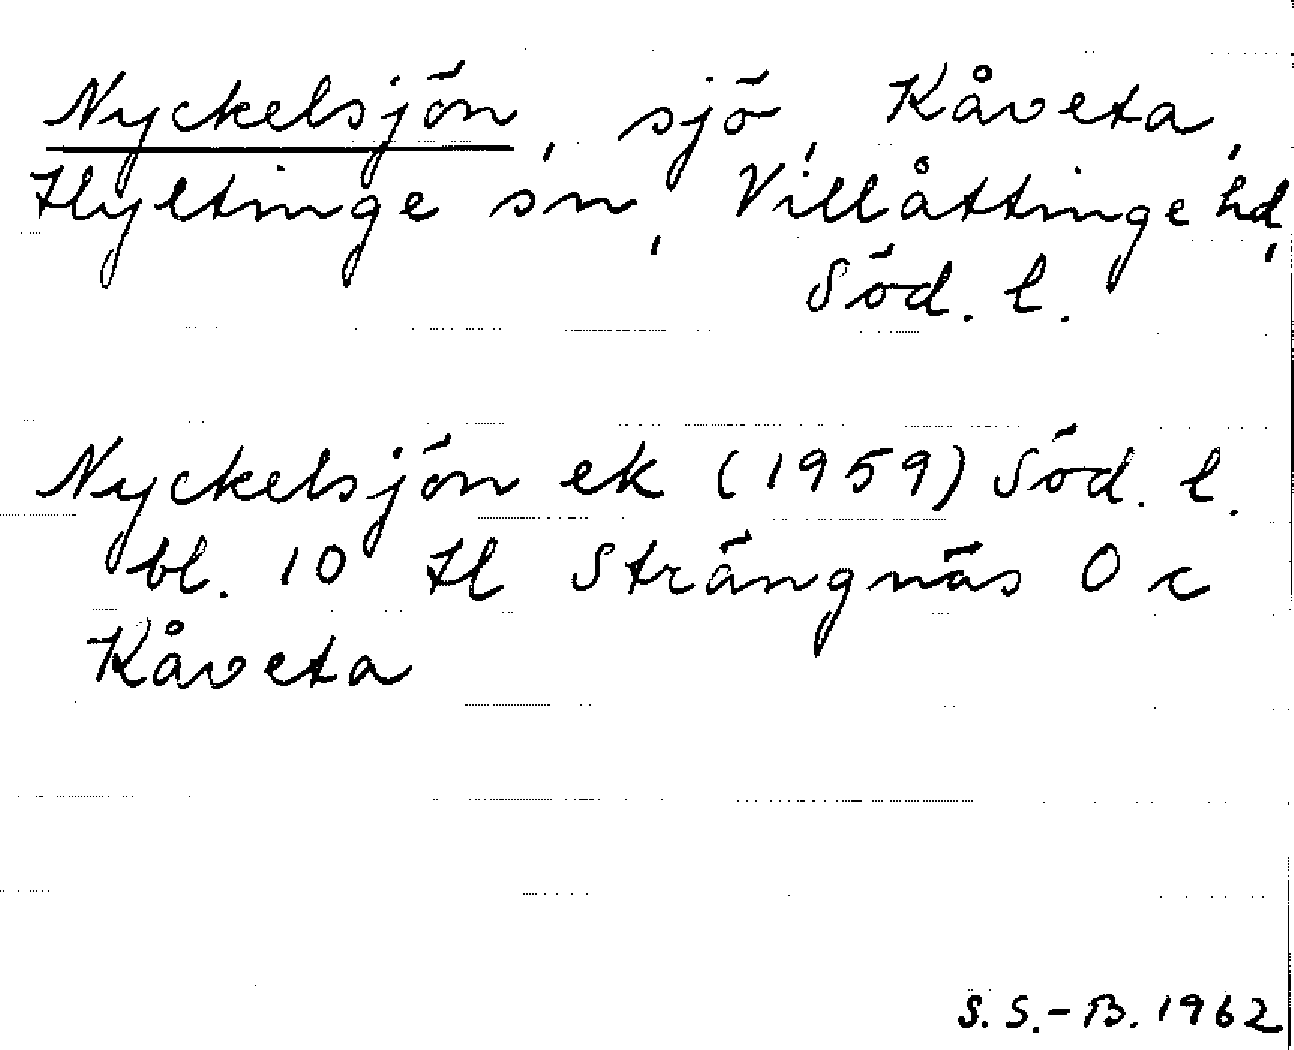 Nyckelsjön, sjö, Kåveta,
Hyltinge sn, Villåttinge hd,
Söd. l.
Nyckelsjön ek (1959) Söd. l.
bl. 10 H Strängnäs O c
Kåveta
S. S.-B. 1962